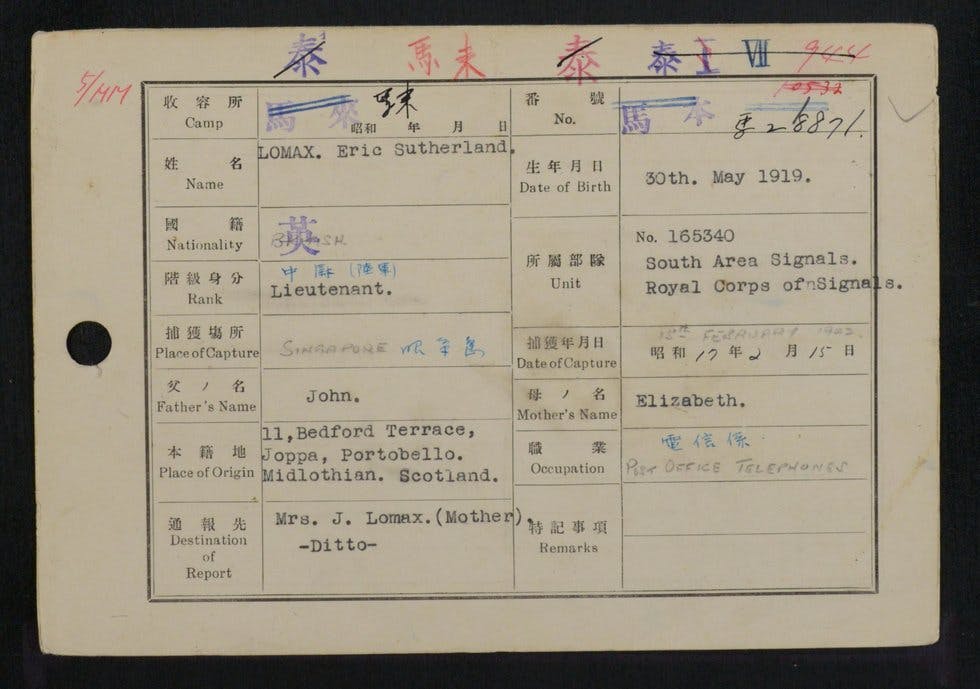 泰 馬来 泰 泰 I VII 944
5/MM
10532
收容所
Camp
馬來
昭和 年 月 日
番號
No.
馬本
馬2 18871.
姓名
Name
LOMAX. Eric Sutherland.
生年月日
Date of Birth
30th. May 1919.
國籍
Nationality
英
BRITISH.
所屬部隊
Unit
No. 165340
South Area Signals.
Royal Corps of Signals.
階級身分
Rank
中尉 (陸軍)
Lieutenant.
捕獲場所
Place of Capture
SINGAPORE 昭南島
捕獲年月日
Date of Capture
15TH FEBRUARY 1942
昭和 17 年 2 月 15 日
父ノ名
Father's Name
John.
母ノ名
Mother's Name
Elizabeth.
本籍地
Place of Origin
11,Bedford Terrace,
Joppa, Portobello.
Midlothian. Scotland.
職業
Occupation
電信係.
POST OFFICE TELEPHONES
通報先
Destination
of
Report
Mrs. J. Lomax.(Mother).
-Ditto-
特記事項
Remarks